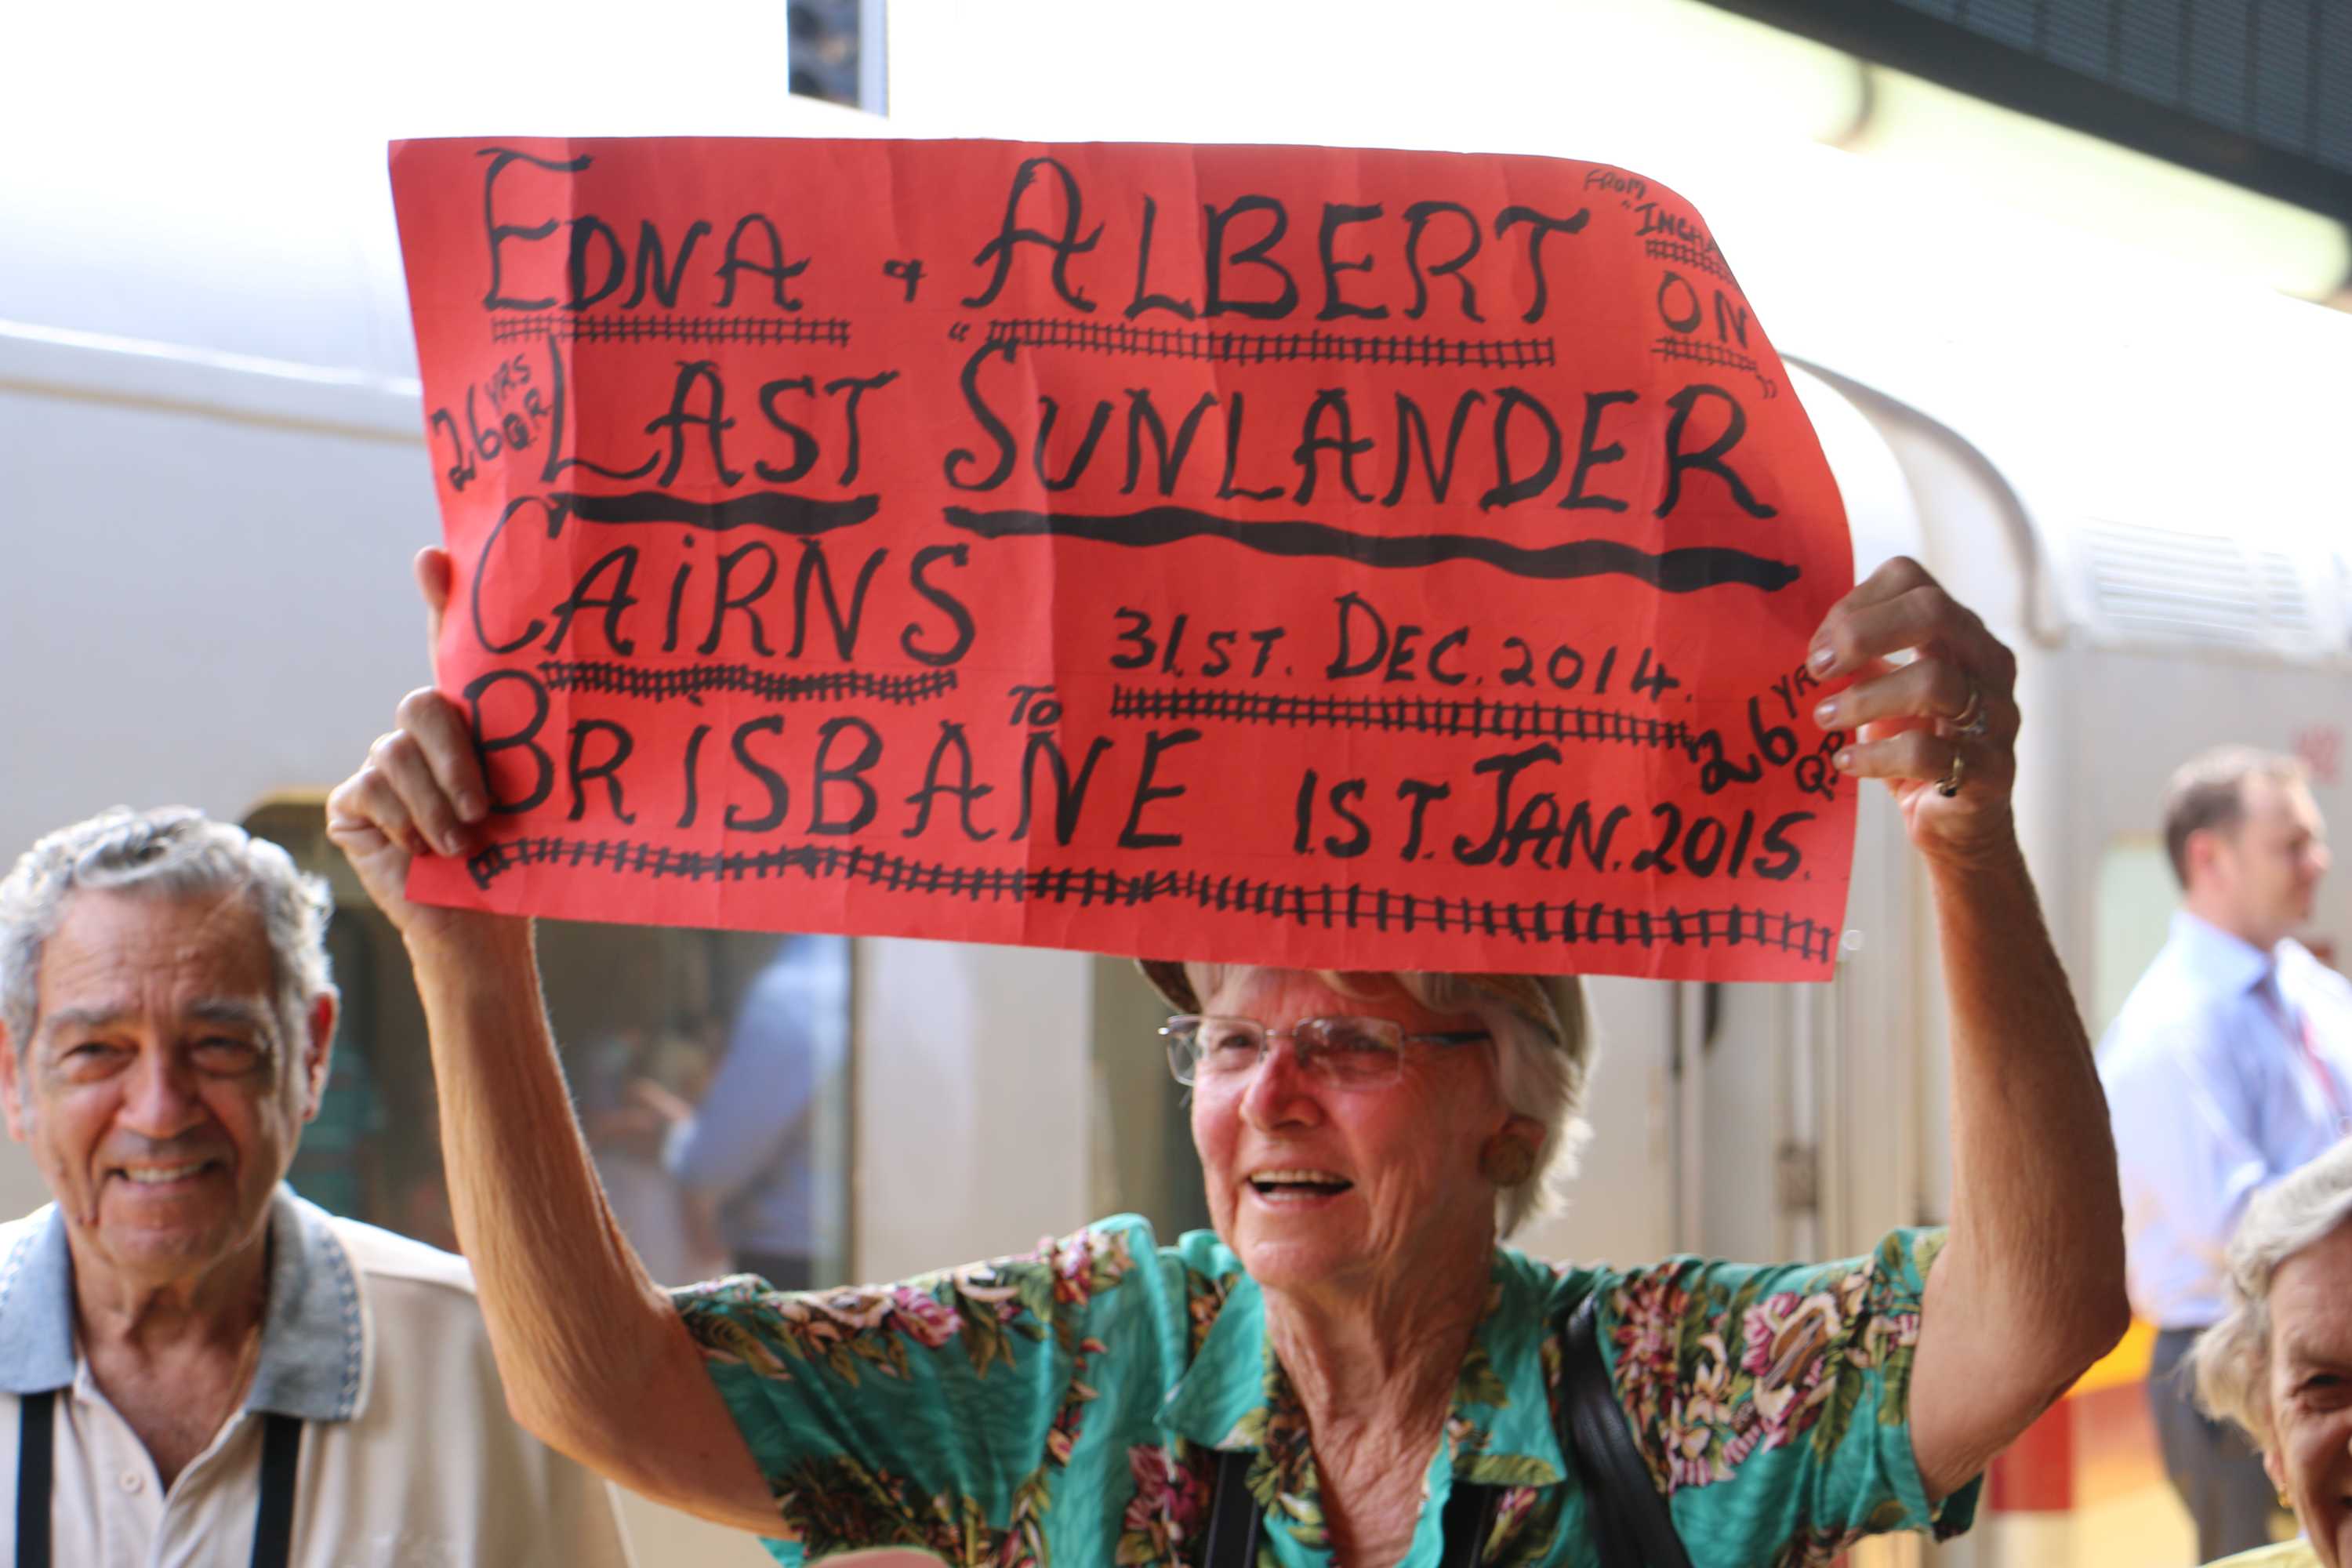 EDNA & ALBERT
FROM
ON
26 YRS
QR
LAST "SUNLANDER"
CAIRNS
31.ST. DEC. 2014.
TO
BRISBANE 1.ST. JAN. 2015.
26